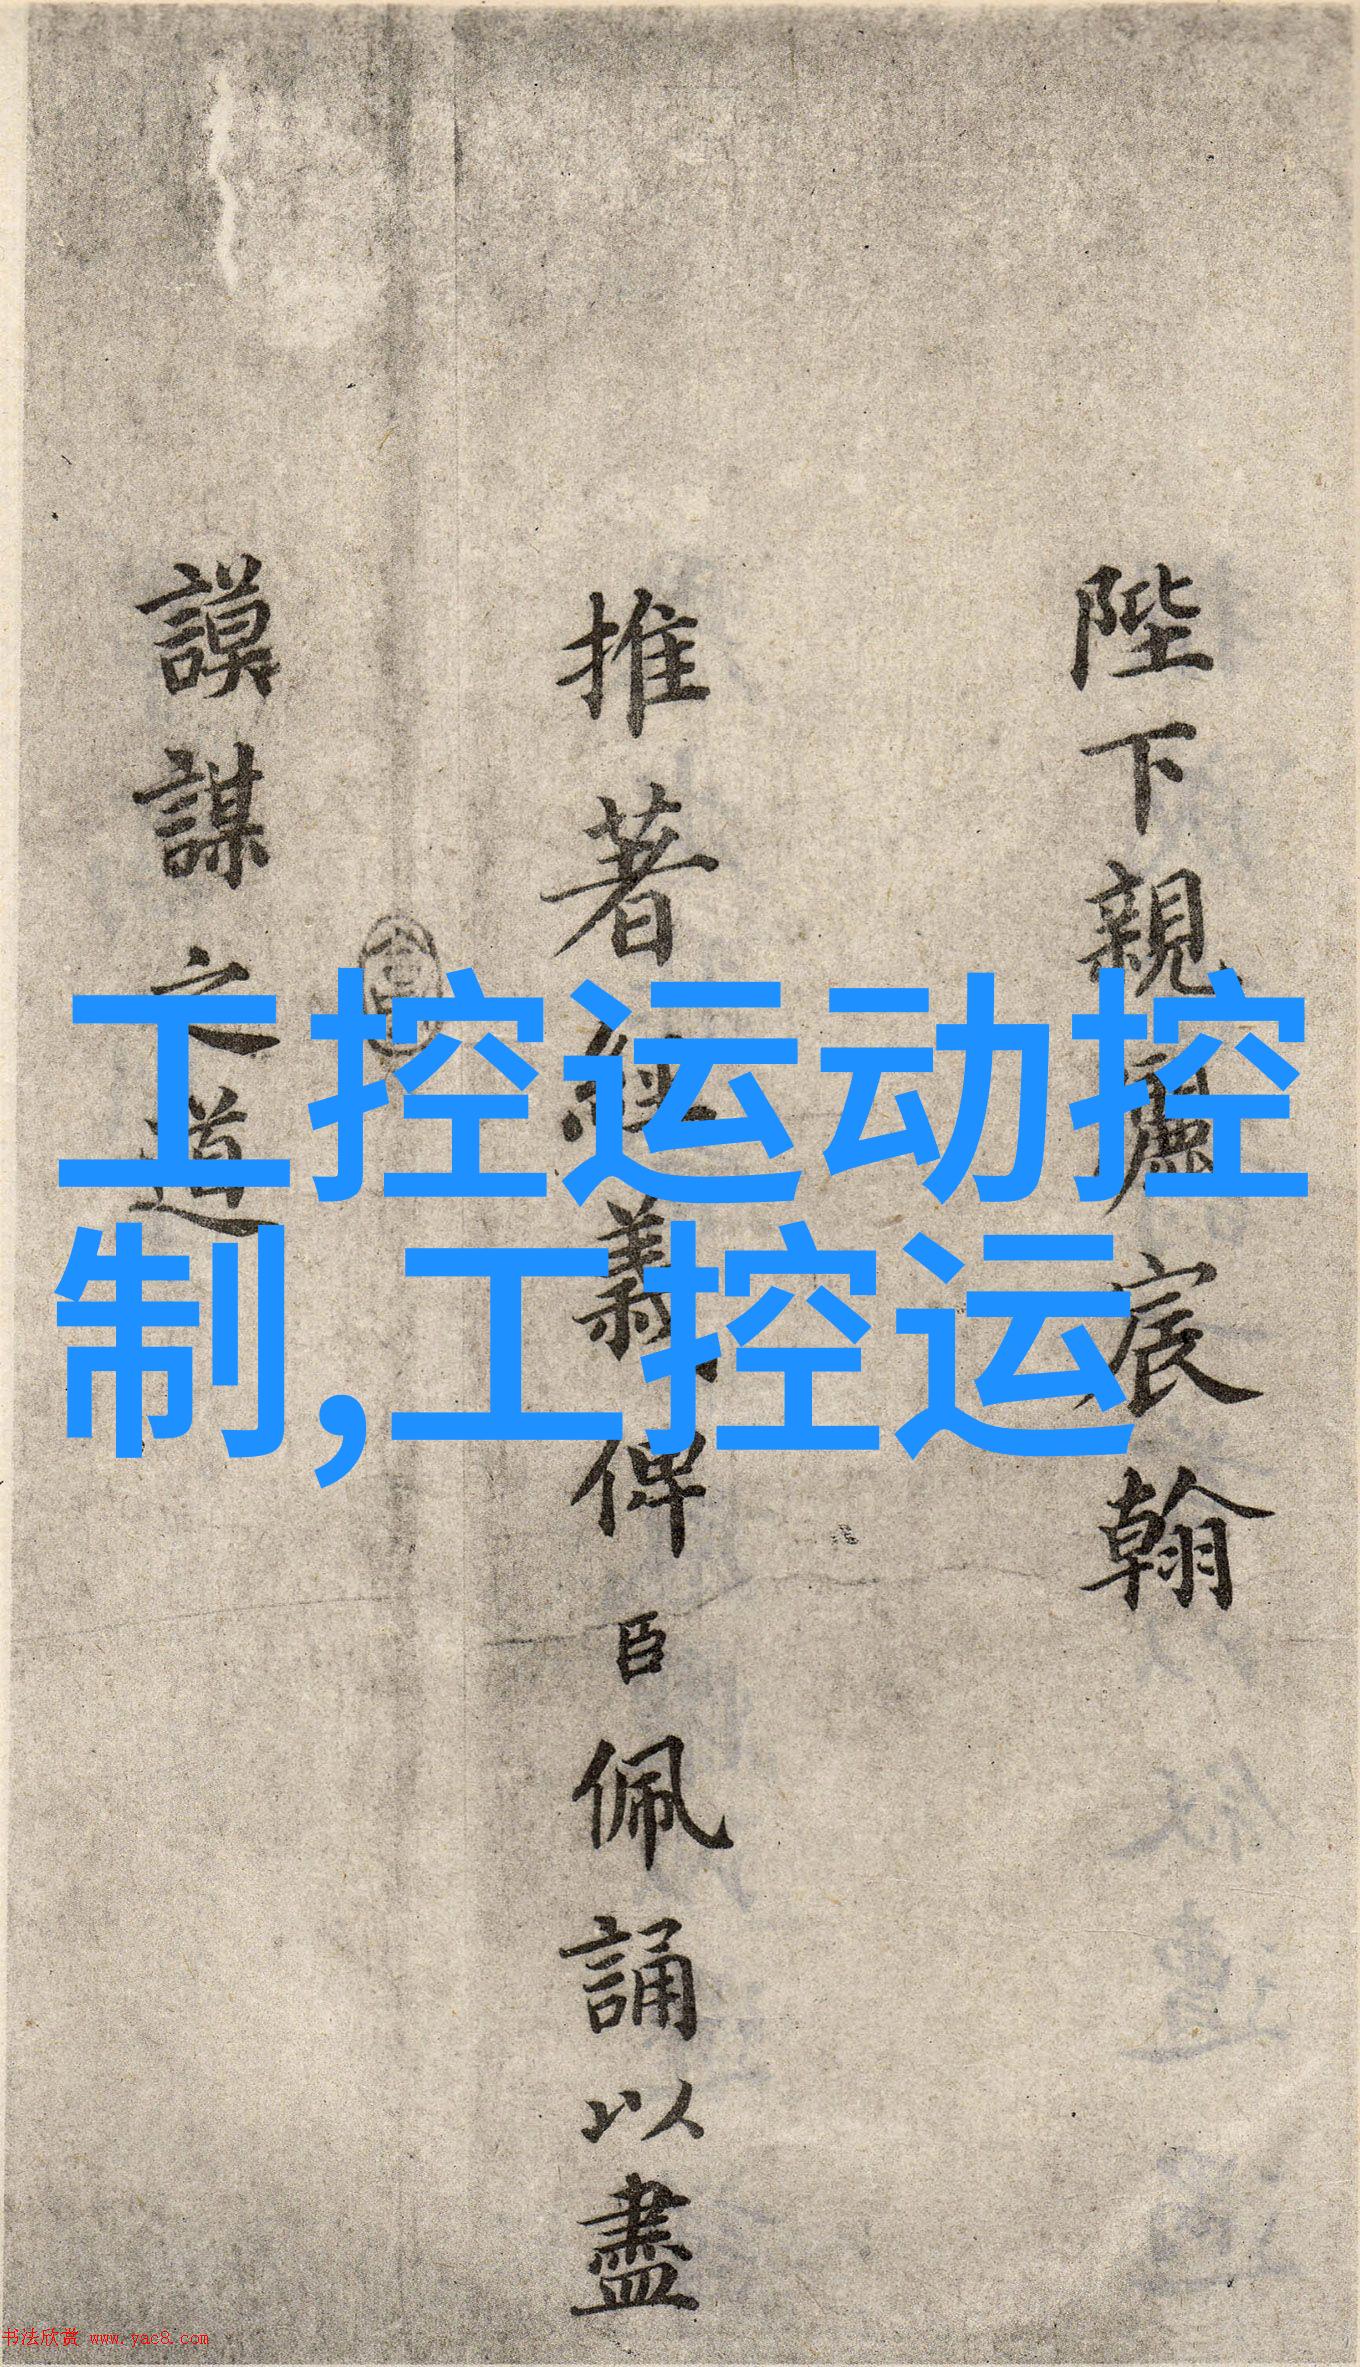 陛下親灑宸翰
推著經義俾臣佩誦以盡
謨謀之道
工控运动控
制,工控运
书法欣赏 www.yac8.com